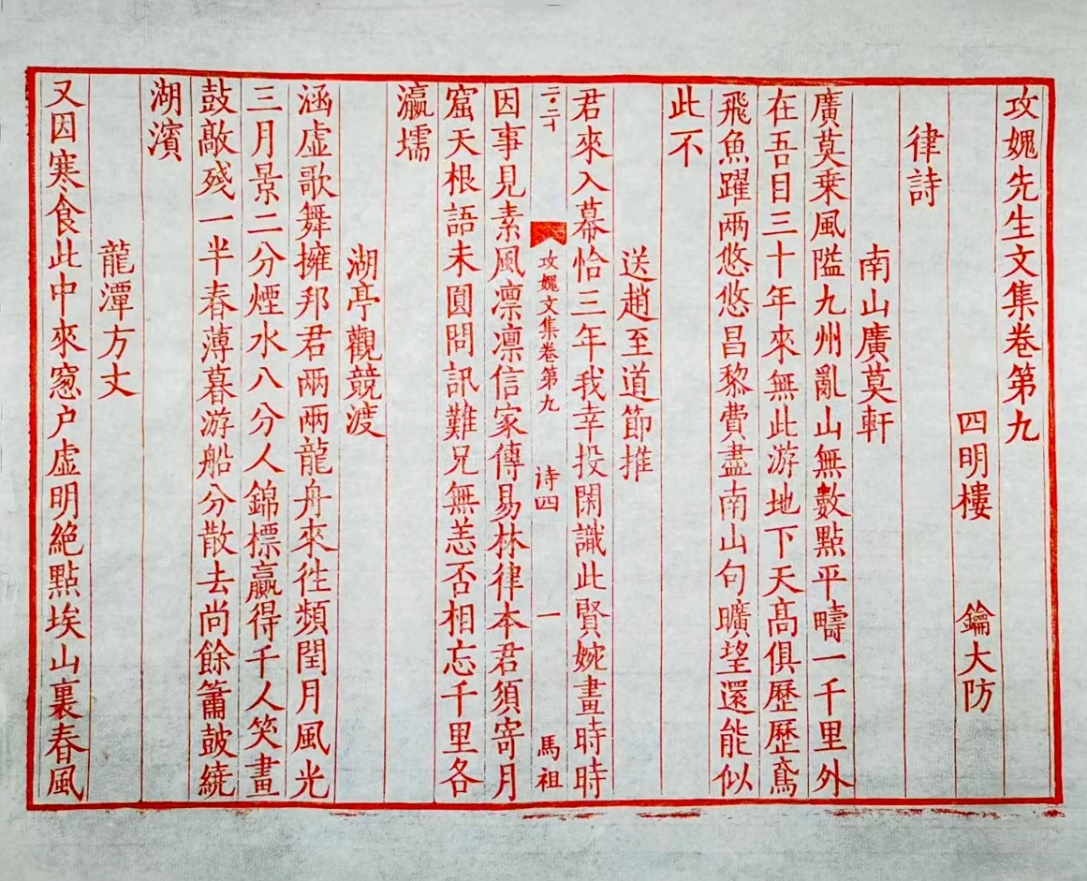 攻媿先生文集卷第九
四明樓 鑰大防
律詩
南山廣莫軒
廣莫乗風隘九州亂山無數點平疇一千里外
在吾目三十年來無此游地下天髙俱歷歷鳶
飛魚躍兩悠悠昌黎費盡南山句曠望還能似
此不
送趙至道節推
君來入幕恰三年我幸投閑識此賢婉畫時時
二·二十 攻媿文集卷第九 诗四 一 馬祖
因事見素風凛凛信家傳易林律本君須寄月
窟天根語未圓問訊難兄無恙否相忘千里各
瀛壖
湖亭觀競渡
涵虛歌舞擁邦君兩兩龍舟來徃頻閏月風光
三月景二分煙水八分人錦標贏得千人笑畫
鼓敲残一半春薄暮游船分散去尚餘簫鼓繞
湖濱
龍潭方丈
又因寒食此中來窻户虛明絶點埃山裏春風